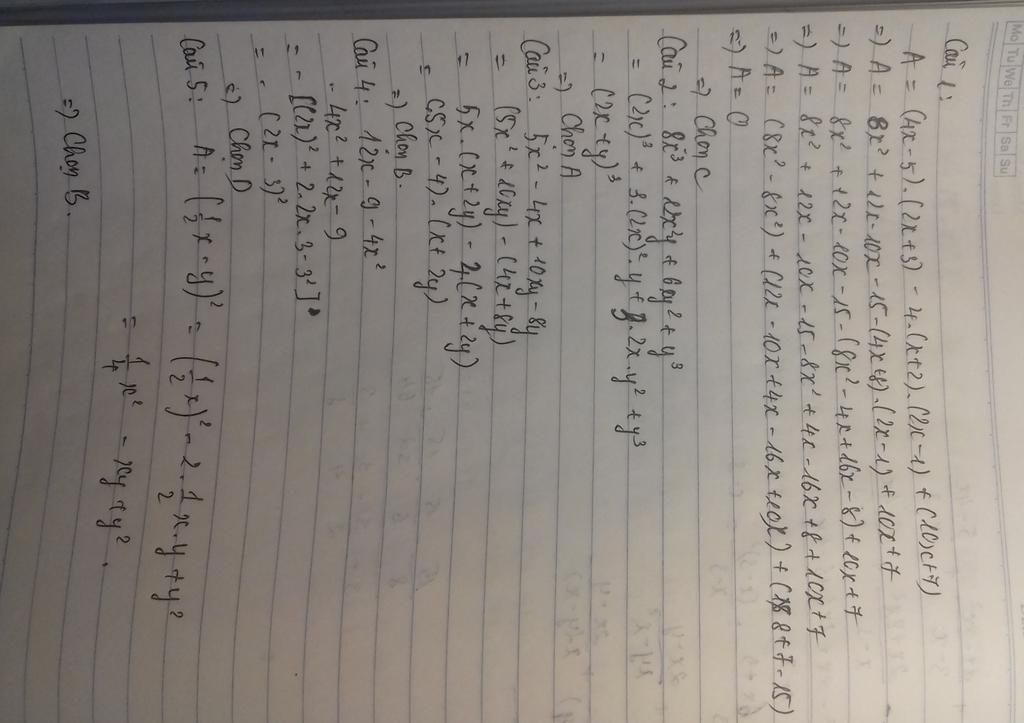 Mo Tu We Th Fr Sa Su
Câu 1:
A = (4x-5).(2x+3) - 4.(x+2).(2x-1) + (10x+7)
=) A = 8x² + 12x - 10x - 15 - (4x+8).(2x-1) + 10x+7
=) A = 8x² + 12x - 10x - 15 - (8x² - 4x + 16x - 8) + 10x + 7
=) A = 8x² + 12x - 10x - 15 - 8x² + 4x - 16x + 8 + 10x + 7
=) A = (8x² - 8x²) + (12x - 10x + 4x - 16x + 10x) + (8 + 7 - 15)
=) A = 0
=) Chọn C
Câu 2: 8x³ + 12x²y + 6xy² + y³
= (2x)³ + 3.(2x)².y + 3.2x.y² + y³
= (2x+y)³
=) Chọn A
Câu 3: 5x² - 4x + 10xy - 8y
= (5x² + 10xy) - (4x + 8y)
= 5x.(x+2y) - 4(x+2y)
= (5x - 4).(x+2y)
=) Chọn B.
Câu 4: 12x - 9 - 4x²
= - 4x² + 12x - 9
= - [(2x)² + 2.2x.3 - 3²]
= - (2x - 3)²
=) Chọn D
Câu 5: A = (1/2 x - y)² = (1/2 x)² - 2.1/2 x.y + y²
= 1/4 x² - xy + y².
=) Chọn B.